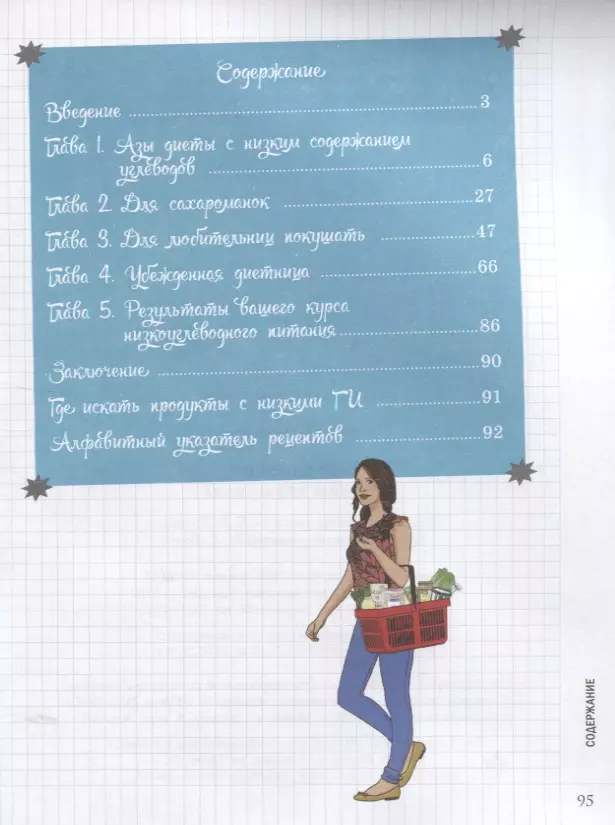 Содержание
Введение ........ 3
Глава 1. Азы диеты с низким содержанием
углеводов ........ 6
Глава 2. Для сахароманок ........ 27
Глава 3. Для любительниц покушать ........ 47
Глава 4. Убежденная диетница ........ 66
Глава 5. Результаты вашего курса
низкоуглеводного питания ........ 86
Заключение ........ 90
Где искать продукты с низкими ГИ ........ 91
Алфавитный указатель рецептов ........ 92
СОДЕРЖАНИЕ
95